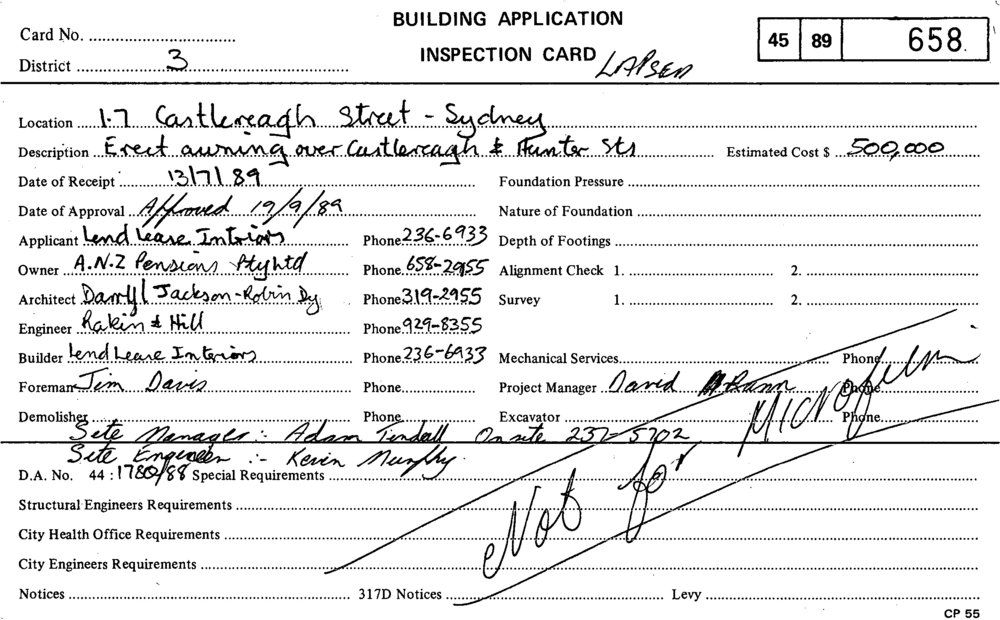 BUILDING APPLICATION
Card No.
45 89 658.
INSPECTION CARD LAPSED
District 3
Location 1-7 Castlereagh Street - Sydney
Description Erect awning over Castlereagh & Hunter Sts Estimated Cost $ 500,000
Date of Receipt 13/7/89 Foundation Pressure
Date of Approval Approved 19/9/89 Nature of Foundation
Applicant Lend Lease Interiors Phone 236-6933 Depth of Footings
Owner A.N.Z Pensions Pty Ltd Phone. 658-2955 Alignment Check 1. 2.
Architect Darryl Jackson-Robin Dy Phone 319-2955 Survey 1. 2.
Engineer Rakin & Hill Phone 929-8355
Builder Lend Lease Interiors Phone 236-6933 Mechanical Services Phone
Foreman Jim Davis Phone Project Manager David Phone
Demolisher Phone Excavator Phone
Site Manager :- Adam Tindall On site 237-5702
Site Engineer :- Kevin Murphy
D.A. No. 44 : 1780/88 Special Requirements
Not for Microfilm
Structural Engineers Requirements
City Health Office Requirements
City Engineers Requirements
Notices 317D Notices Levy
CP 55